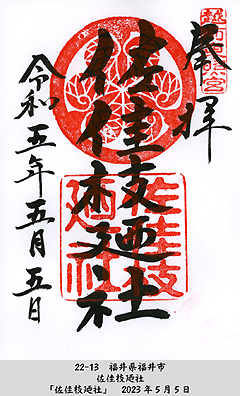 奉拝
佐佳枝廼社
令和五年五月五日
佐佳枝廼社
22-13 福井県福井市
佐佳枝廼社
「佐佳枝廼社」 2023年5月5日